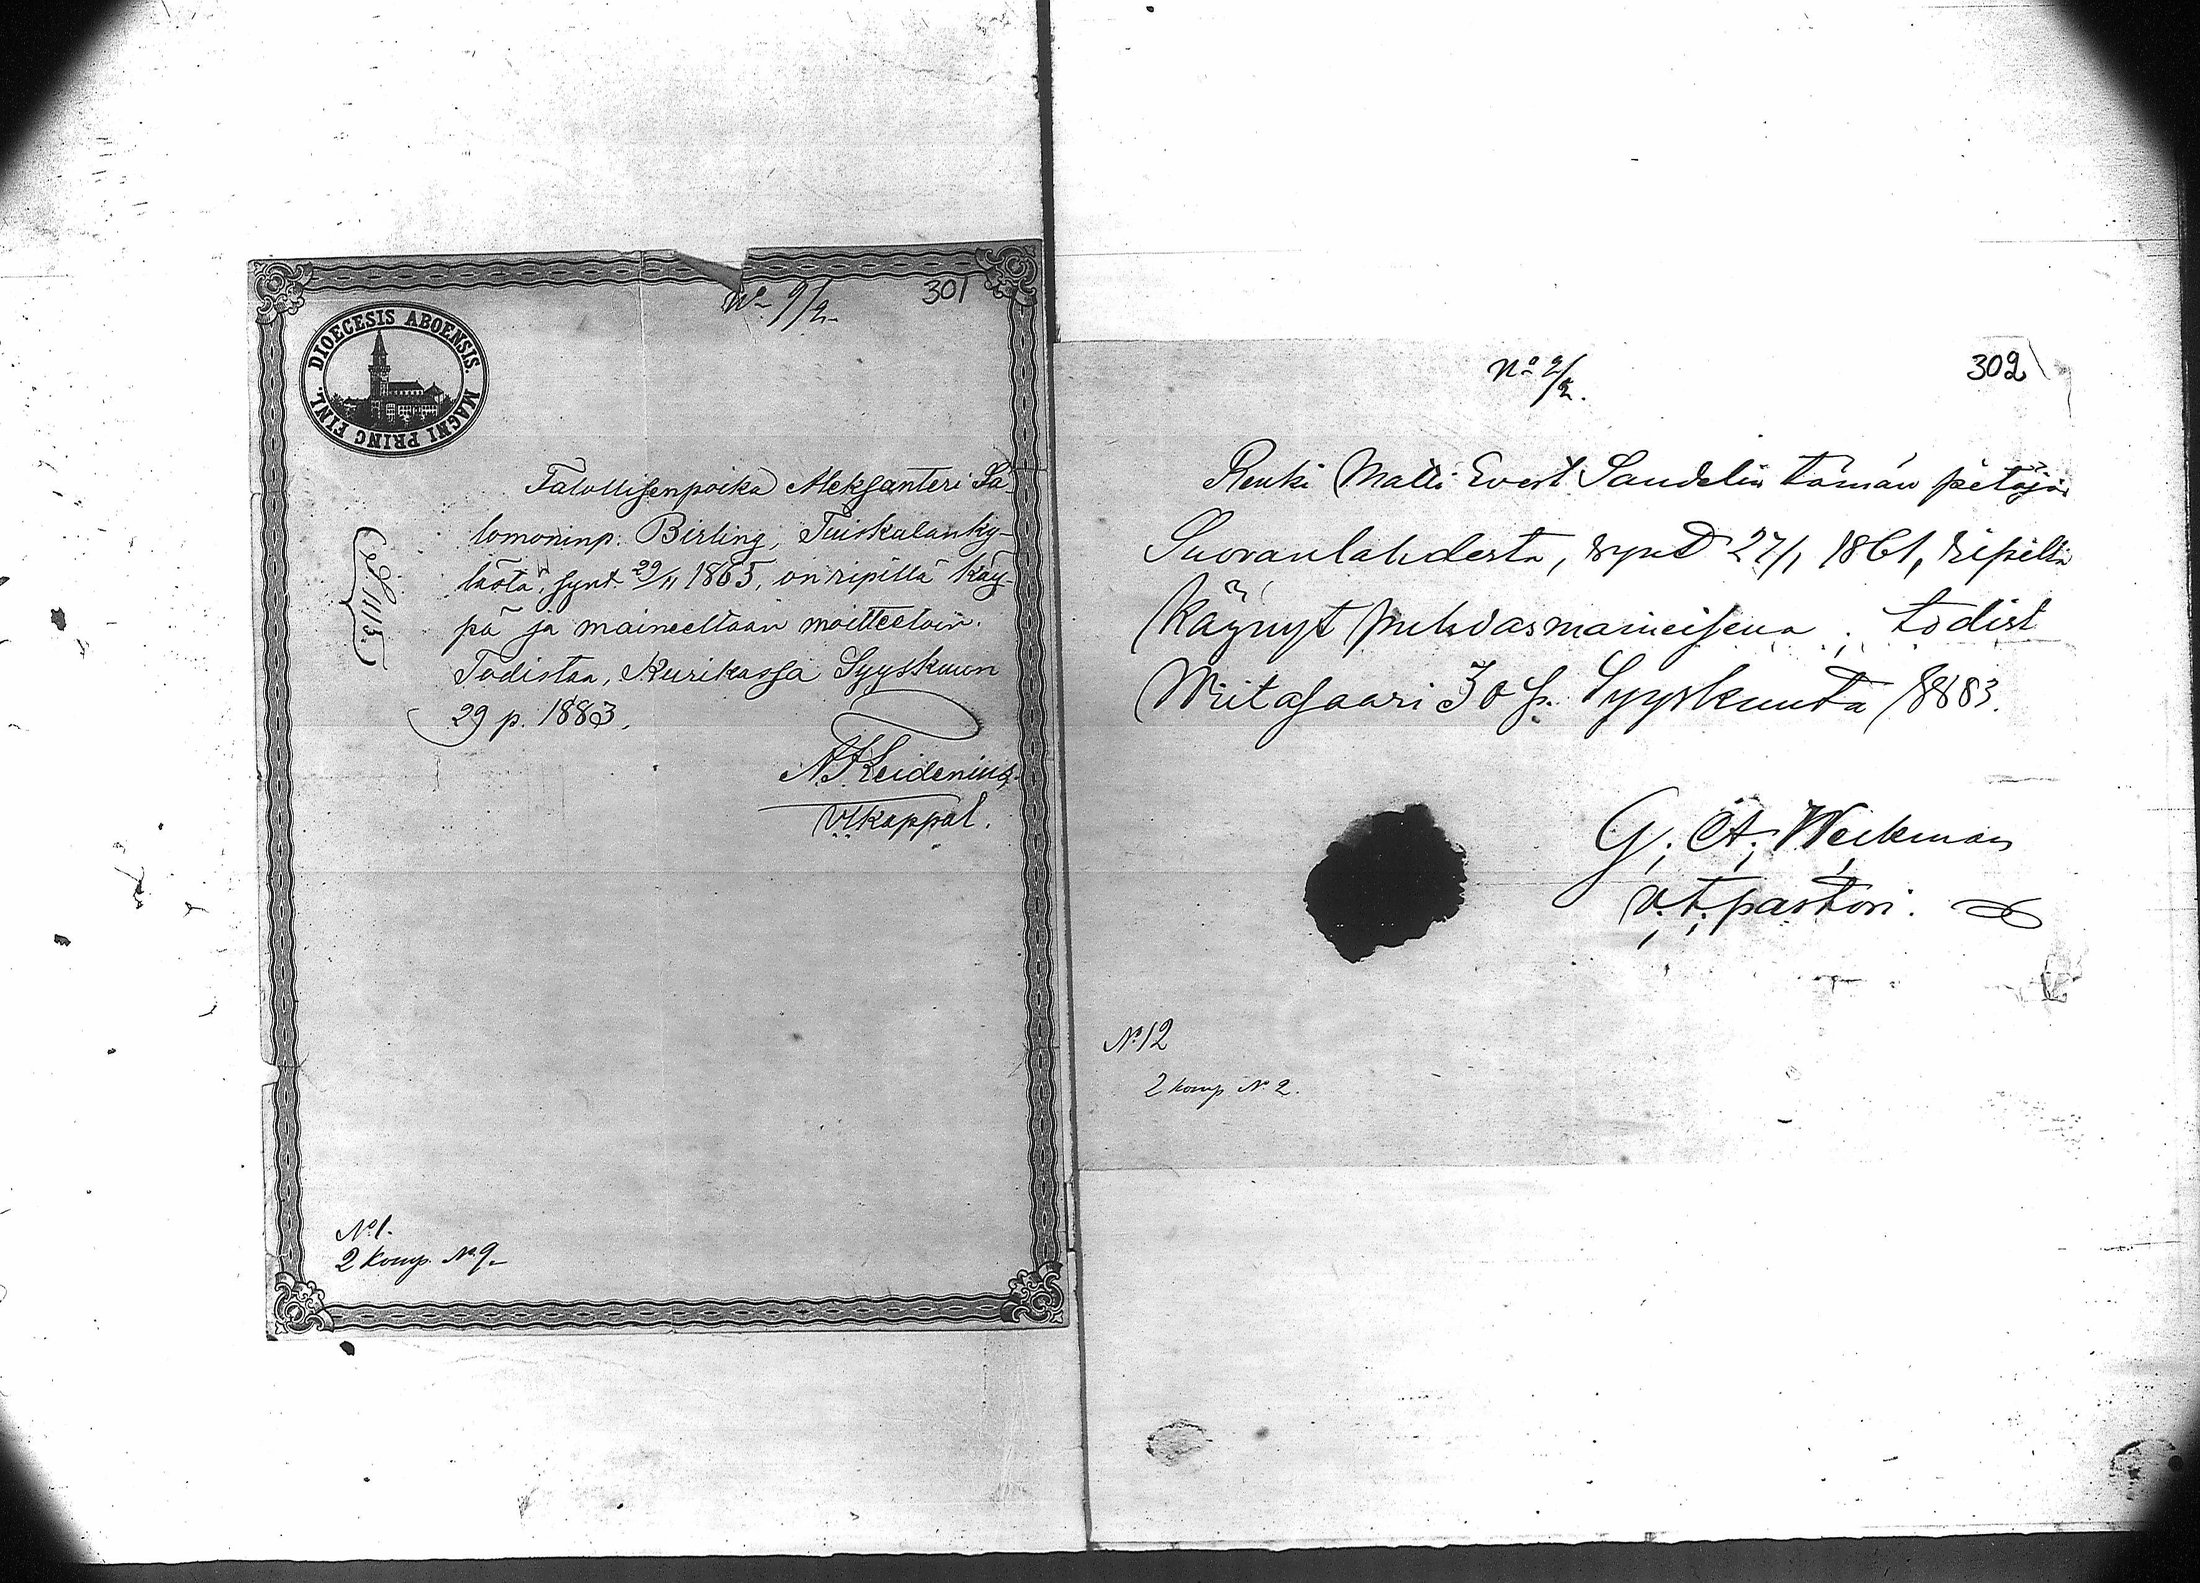 No 9/2.
301
DIOECESIS ABOENSIS. MAGNI PRINC FINL.
Talollisenpoika Aleksanteri Sa-
lomoninp. Birling, Tuiskulanky-
lästä, synt. 29/11 1865, on ripillä käy-
pä ja maineeltaan moitteetoin.
Todistaa, Kurikassa Syyskuun
29 p. 1883.
Vt kappal.
No 1.
2 Komp. No 9.
No 2/2.
302
Renki Matti Evert Sandelin tämän pitäjän
Suovanlahdesta, synt 27/1 1861, ripillä
käynyt puhdasmaineisena; todist
Wiitasaari 30 p. Syyskuuta 1883.
G. A. Weckman
v.t. pastori.
No 12
2 komp No 2.